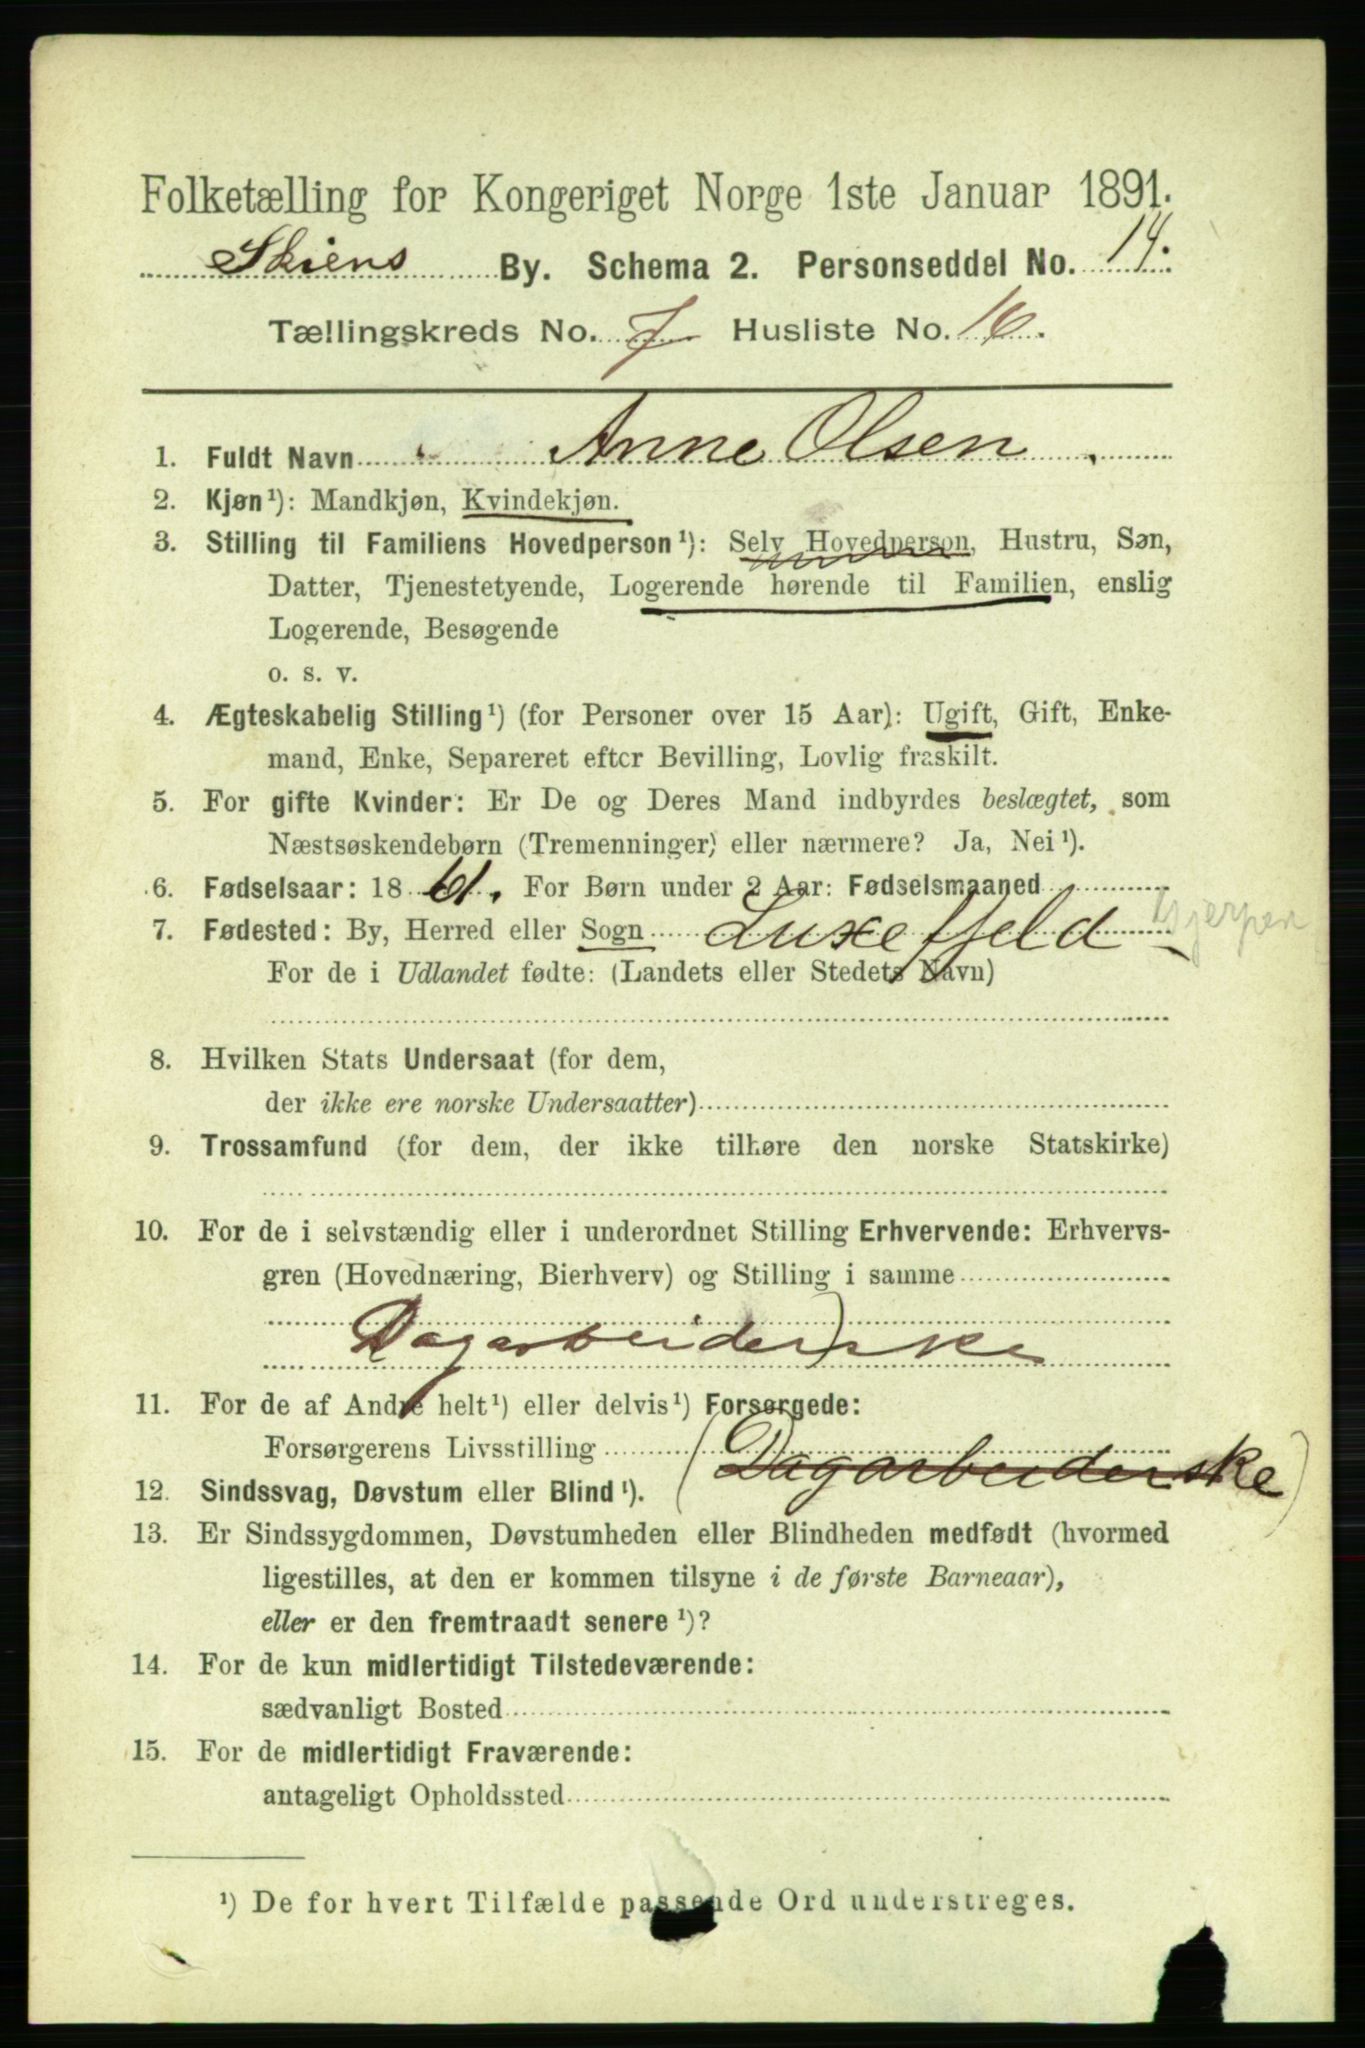 Folketælling for Kongeriget Norge 1ste Januar 1891.
Skiens By. Schema 2. Personseddel No. 14.
Tællingskreds No. 7 Husliste No. 16.
1. Fuldt Navn Anne Olsen.
2. Kjøn¹): Mandkjøn, Kvindekjøn.
3. Stilling til Familiens Hovedperson¹): Selv Hovedperson, Hustru, Søn,
Datter, Tjenestetyende, Logerende hørende til Familien, enslig
Logerende, Besøgende
o. s. v.
4. Ægteskabelig Stilling¹) (for Personer over 15 Aar): Ugift, Gift, Enke-
mand, Enke, Separeret efter Bevilling, Lovlig fraskilt.
5. For gifte Kvinder: Er De og Deres Mand indbyrdes beslægtet, som
Næstsøskendebørn (Tremenninger) eller nærmere? Ja, Nei¹).
6. Fødselsaar: 1861. For Børn under 2 Aar: Fødselsmaaned
7. Fødested: By, Herred eller Sogn Luxefjeld Gjerpen
For de i Udlandet fødte: (Landets eller Stedets Navn)
8. Hvilken Stats Undersaat (for dem,
der ikke ere norske Undersaatter)
9. Trossamfund (for dem, der ikke tilhøre den norske Statskirke)
10. For de i selvstændig eller i underordnet Stilling Erhvervende: Erhvervs-
gren (Hovednæring, Bierhverv) og Stilling i samme
Dagarbeiderske
11. For de af Andre helt¹) eller delvis¹) Forsørgede:
Forsørgerens Livsstilling (Dagarbeiderske)
12. Sindssvag, Døvstum eller Blind¹).
13. Er Sindssygdommen, Døvstumheden eller Blindheden medfødt (hvormed
ligestilles, at den er kommen tilsyne i de første Barneaar),
eller er den fremtraadt senere¹)?
14. For de kun midlertidigt Tilstedeværende:
sædvanligt Bosted
15. For de midlertidigt Fraværende:
antageligt Opholdssted
¹) De for hvert Tilfælde passende Ord understreges.